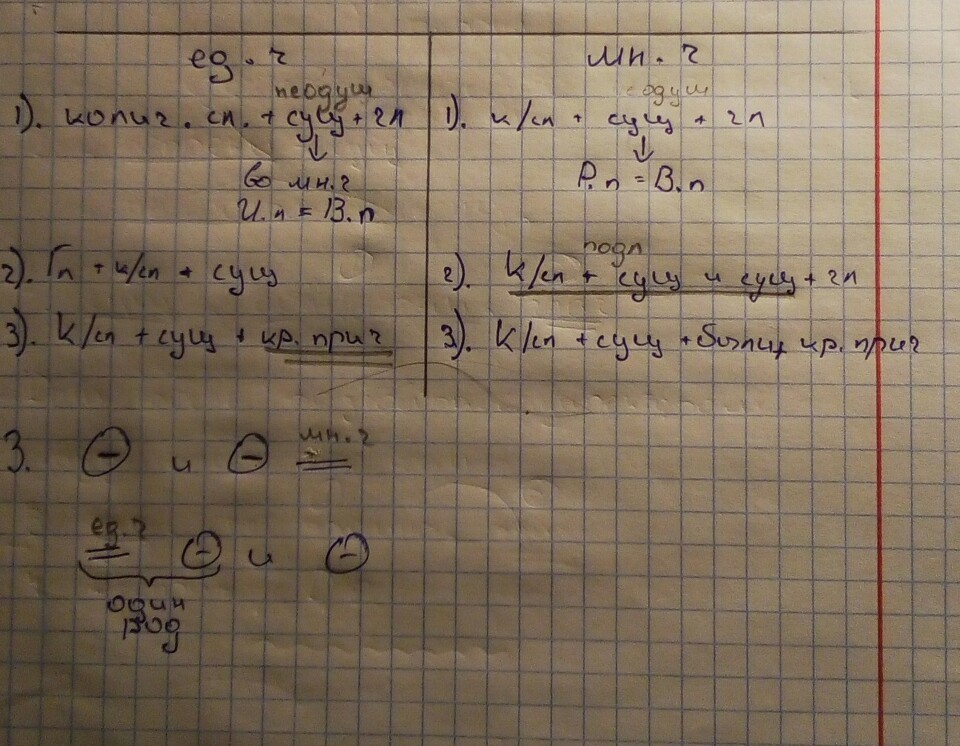 ед. ч
мн. ч
неодуш
1). колич. сл. + сущ + гл
во мн. ч
И.п = В.п
одуш
1). к/сл + сущ + гл
Р.п = В.п
2). Гл + к/сл + сущ
подл
2). К/сл + сущ и сущ + гл
3). К/сл + сущ + кр. прич
3). К/сл + сущ + были кр. прич
3. – и – мн. ч
ед. ч – и –
один
род